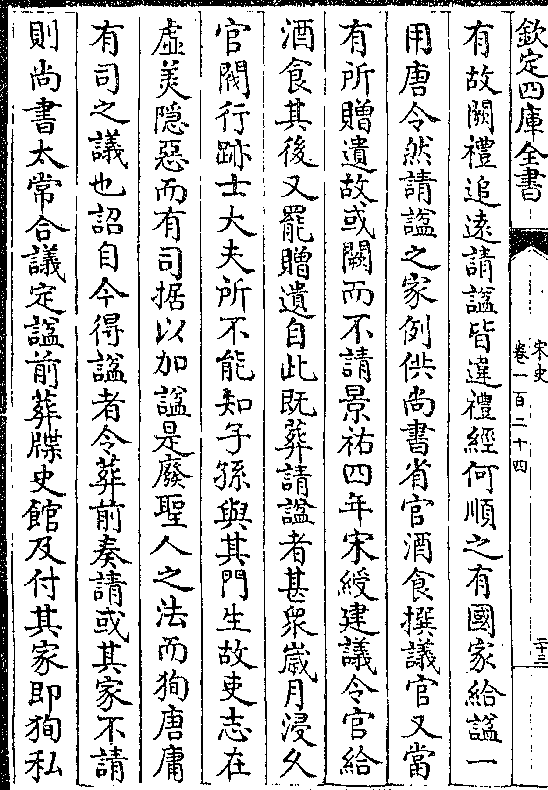 欽定四庫全書
宋史
卷一百二十四
二十三
有故闕禮追遠請諡皆違禮經何順之有國家給諡一
用唐令然請諡之家例供尚書省官酒食撰議官又當
有所贈遺故或闕而不請景祐四年宋綬建議令官給
酒食其後又罷贈遺自此既葬請諡者甚衆歲月浸久
官閥行跡士大夫所不能知子孫與其門生故吏志在
虛美隱惡而有司据以加諡是廢聖人之法而狥唐庸
有司之議也詔自今得諡者令葬前奏請或其家不請
則尚書太常合議定諡前葬牒史館及付其家即狥私